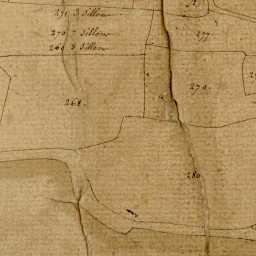 271 3 Sillon
270 7 Sillons
269 3 Sillon
277.
274.
268.
280